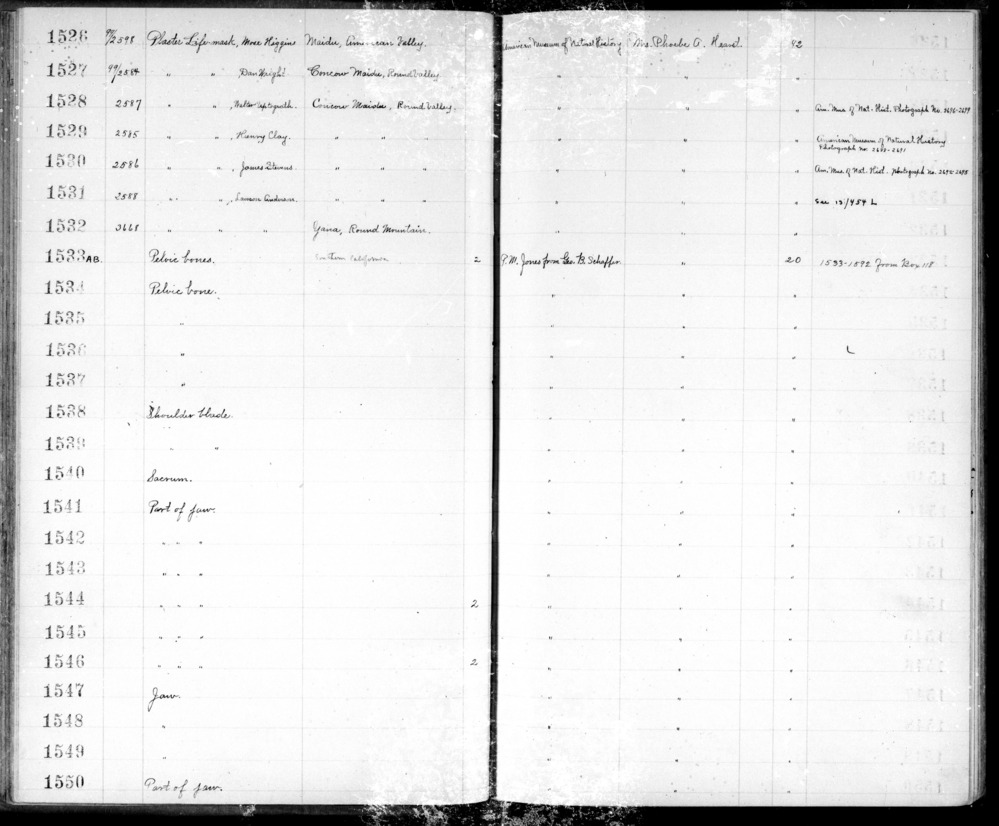 1526 99/2598 Plaster Life-mask, Mose Higgins Maidu, American Valley. American Museum of Natural History Mrs. Phoebe A. Hearst. 42
1527 99/2584 " " Dan Wright Concow Maidu, Round Valley " " "
1528 2587 " " , Concow Maidu, Round Valley. " " " Am. Mus. of Nat. Hist. Photograph No.
1529 2585 " " , Henry Clay. " " " " " " American Museum of Natural History
Photograph no.
1530 2586 " " , James Stevens " " " " " " Am. Mus. of Nat. Hist. Photograph No.
1531 2588 " " , " " " " " " See 13/454 L
1532 3668 " " " Yana, Round Mountain. " " "
1533 AB. Pelvic bones. California 2 P.M. Jones from Geo. B. Schaffer. " 20 1533-1592 From Box 118
1534 Pelvic bone. " " "
1535 " " " "
1536 " " " " L
1537 " " " "
1538 Shoulder blade. " " "
1539 " " " " "
1540 Sacrum. " " "
1541 Part of jaw. " " "
1542 " " " " " "
1543 " " " " " "
1544 " " " 2 " " "
1545 " " " " " "
1546 " " " 2 " " "
1547 Jaw. " " "
1548 " " " "
1549 " " " "
1550 Part of jaw. " " "